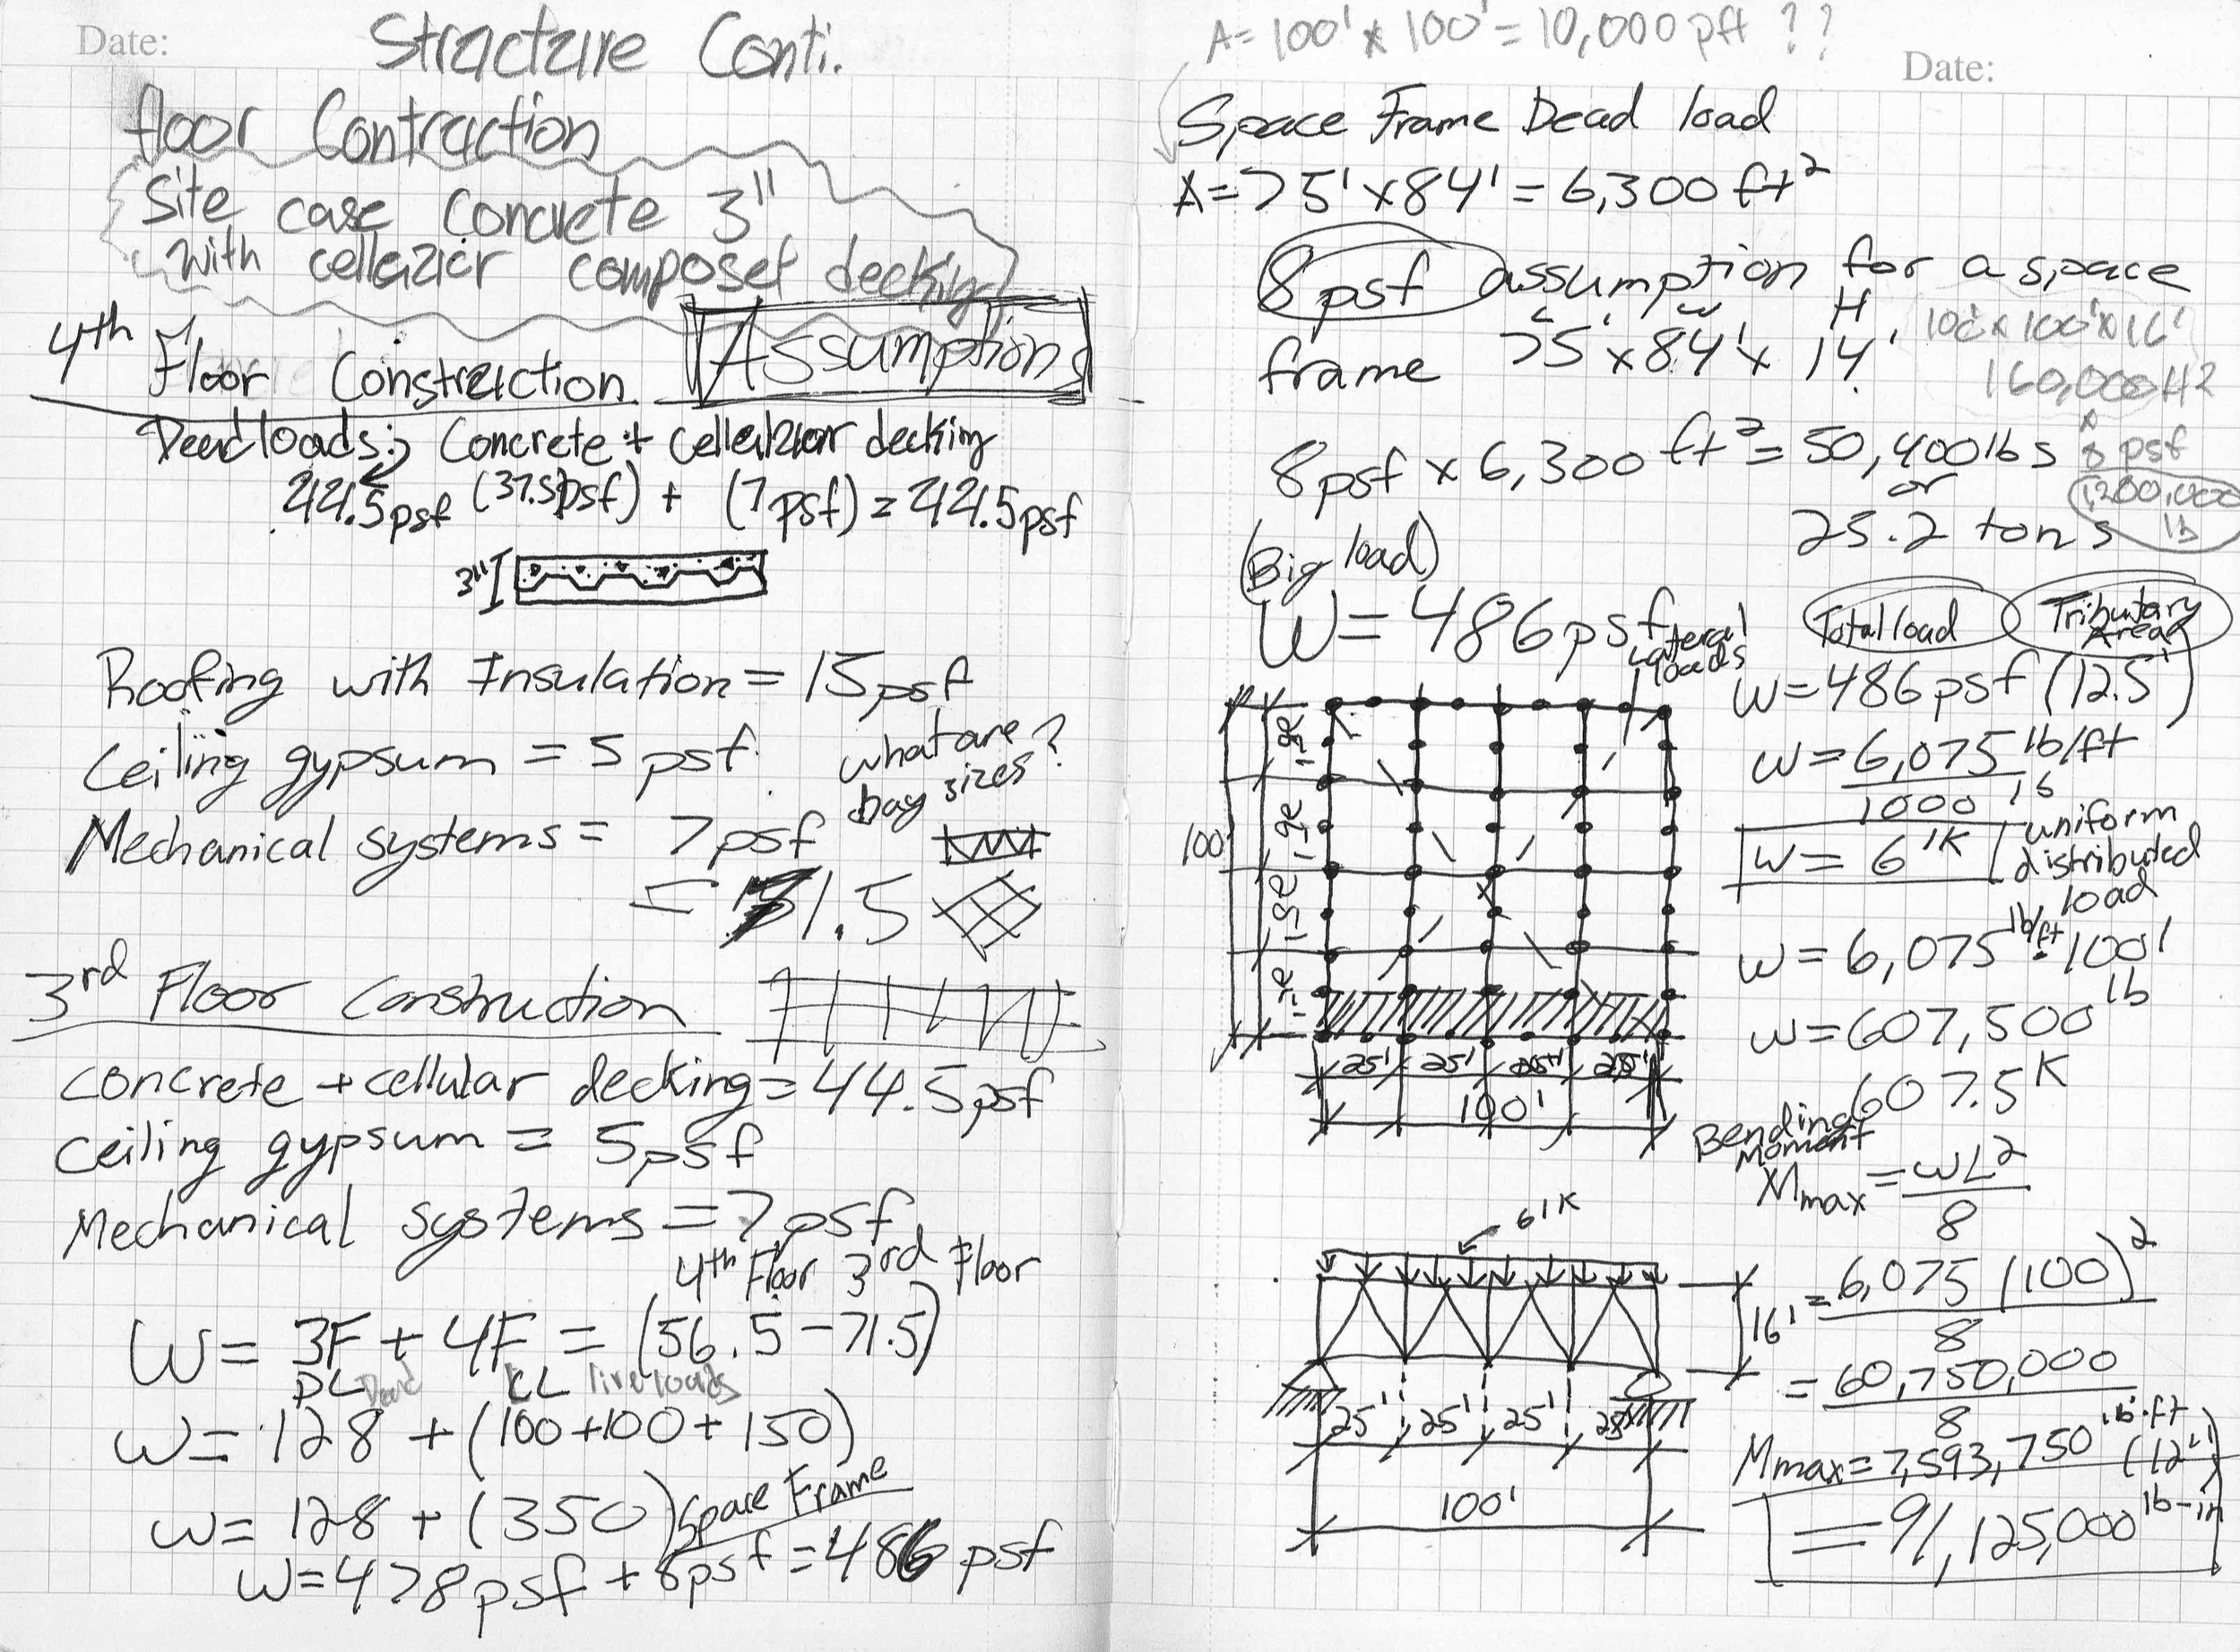 Date:
Structure Conti.
floor Contruction
Site case Concrete 3"
with cellular composet decking
4th Floor Construction Assumptions
Deadloads: Concrete + cellular decking
44.5psf (37.5psf) + (7psf) = 44.5psf
3"
Roofing with Insulation = 15psf
Ceiling gypsum = 5 psf
what are bay sizes?
Mechanical systems = 7psf
= 71.5
3rd Floor Construction
Concrete + cellular decking = 44.5psf
Ceiling gypsum = 5psf
Mechanical systems = 7psf
4th Floor 3rd Floor
W = 3F + 4F = (56.5-71.5)
DL Dead LL live loads
W = 128 + (100+100+150)
W = 128 + (350) Space Frame
W = 478psf + 8psf = 486 psf
A = 100' x 100' = 10,000pft ??
Date:
Space Frame Dead load
A = 75' x 84' = 6,300 ft2
8psf assumption for a space
L W H
frame 75' x 84' x 14'
100' x 100' x 16'
160,000ft2
x
8 psf
1,280,000
lb
8psf x 6,300 ft2 = 50,400lbs
or
25.2 tons
(Big load)
W = 486psf
lateral loads
Total load
Tributary Area
W = 486psf (12.5')
W = 6,075 lb/ft
1000 lb
W = 6 1K
uniform distributed load
W = 6,075 lb/ft · 100'
W = 607,500 lb
607.5 K
100'
25' 25' 25' 25'
100'
Bending Moment
Mmax = wL2
8
= 6,075 (100)2
8
= 60,750,000
8
Mmax = 7,593,750 lb·ft (12")
= 91,125,000 lb-in
61K
16'
25' 25' 25' 25'
100'